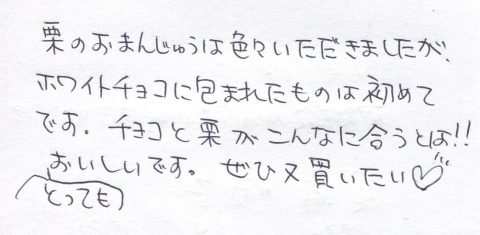 栗のおまんじゅうは色々いただきましたが、
ホワイトチョコに包まれたものは初めて
です。チョコと栗がこんなに合うとは!!
おいしいです。ぜひ又買いたい♡
とっても